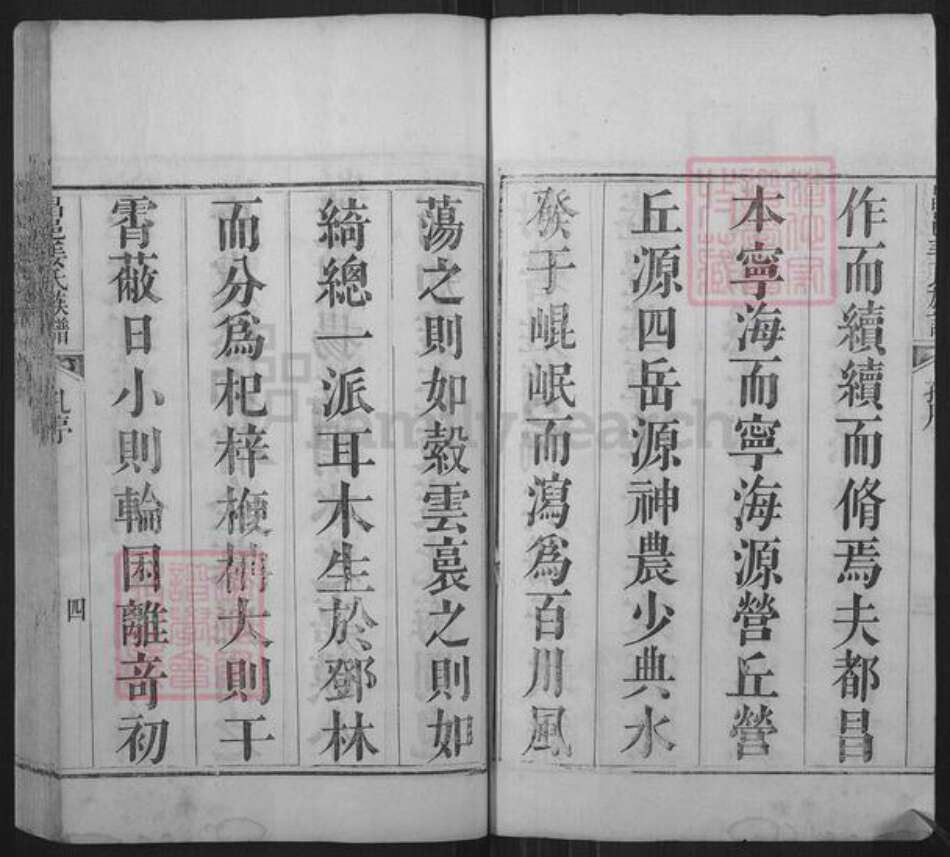 作而續續而脩焉夫都昌
本寧海而寧海源營丘營
丘源四岳源神農少典水
發于崐岷而瀉爲百川風
蕩之則如縠雲裛之則如
綺總一派耳木生於鄧林
而分爲杞梓楩楠大則干
霄蔽日小則輪囷離奇初
姜氏族譜
四
FamilySearch